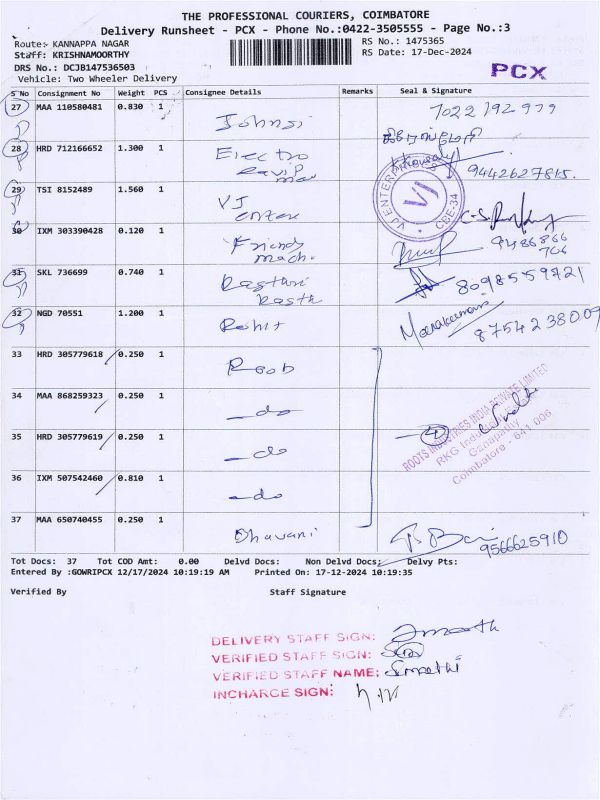 THE PROFESSIONAL COURIERS, COIMBATORE
Delivery Runsheet - PCX - Phone No.:0422-3505555 - Page No.:3
Route:- KANNAPPA NAGAR
RS No.: 1475365
Staff: KRISHNAMOORTHY
RS Date: 17-Dec-2024
DRS No.: DCJB147536503
PCX
Vehicle: Two Wheeler Delivery
S No Consignment No Weight PCS Consignee Details Remarks Seal & Signature
27 MAA 110580481 0.830 1 Johnsi 7022192979
28 HRD 712166652 1.300 1 Electro 9442627815.
29 TSI 8152489 1.560 1 VJ
VJ ENTERPRISES CBE-34 VJ
30 IXM 303390428 0.120 1 Friends mach. 9486866 706
31 SKL 736699 0.740 1 8098559721
32 NGD 70551 1.200 1 Rohit Meenakumari 8754238009
33 HRD 305779618 0.250 1 Roob
34 MAA 868259323 0.250 1 -do
35 HRD 305779619 0.250 1 -do 4
ROOTS INDUSTRIES INDIA PRIVATE LIMITED
Ganapathy
Coimbatore - 641 006
36 IXM 507542460 0.810 1 -do
37 MAA 650740455 0.250 1 Dhavani 9566625910
Tot Docs: 37 Tot COD Amt: 0.00 Delvd Docs: Non Delvd Docs: Delvy Pts:
Entered By :GOWRIPCX 12/17/2024 10:19:19 AM Printed On: 17-12-2024 10:19:35
Verified By Staff Signature
DELIVERY STAFF SIGN:
VERIFIED STAFF SIGN:
VERIFIED STAFF NAME: Sumathi
INCHARGE SIGN: